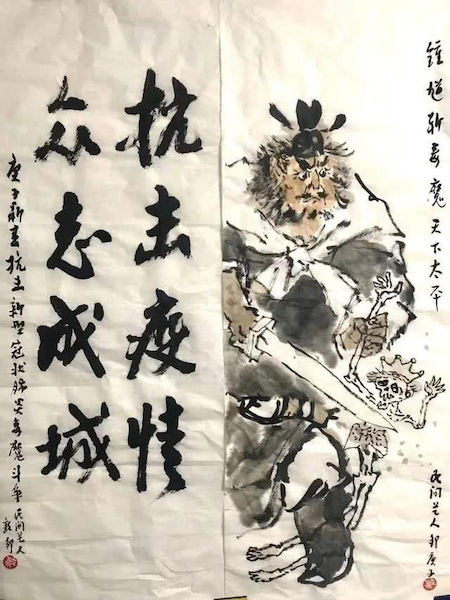 锺馗斩毒魔天下太平
民间艺人
抗击疫情
众志成城
庚子新春抗击新型冠状肺炎毒魔斗争民间艺人